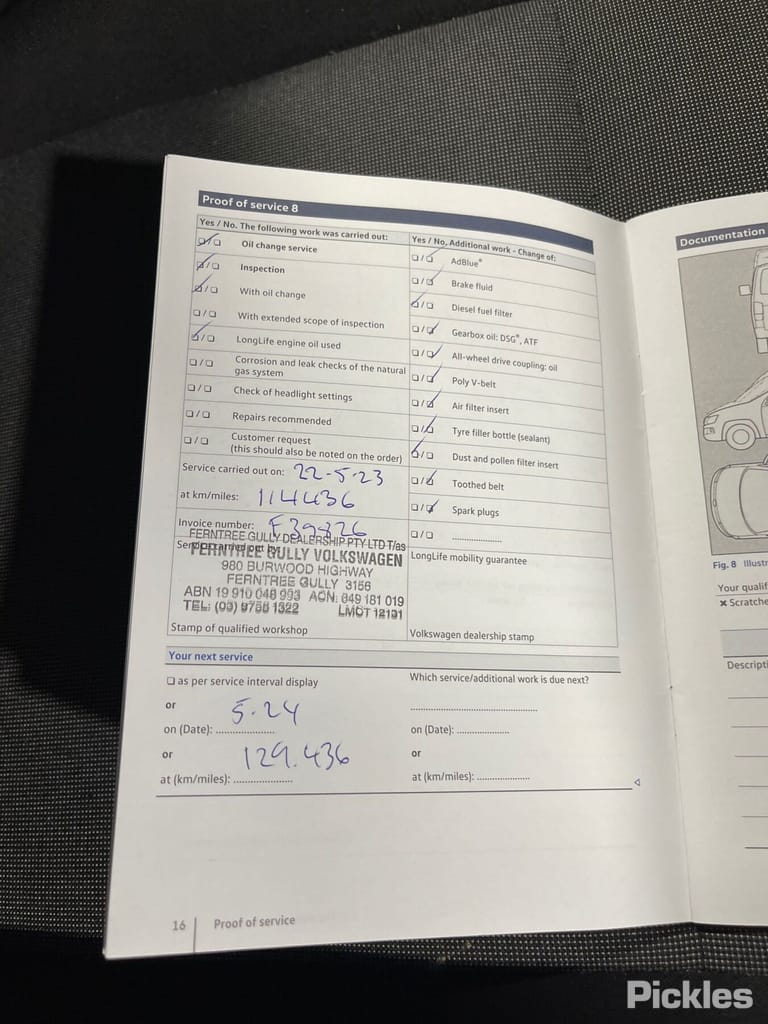 Proof of service 8
Yes / No. The following work was carried out:
Oil change service
Inspection
With oil change
With extended scope of inspection
LongLife engine oil used
Corrosion and leak checks of the natural
gas system
Check of headlight settings
Repairs recommended
Customer request
(this should also be noted on the order)
Service carried out on: 22-5-23
at km/miles: 114436
Invoice number: F39826
FERNTREE GULLY DEALERSHIP PTY LTD T/as
Service carried out by:
FERNTREE GULLY VOLKSWAGEN
980 BURWOOD HIGHWAY
FERNTREE GULLY 3156
ABN 19 910 048 993 ACN: 049 181 019
TEL: (03) 9756 1322 LMCT 12131
Stamp of qualified workshop
Yes / No. Additional work - Change of:
AdBlue®
Brake fluid
Diesel fuel filter
Gearbox oil: DSG®, ATF
All-wheel drive coupling: oil
Poly V-belt
Air filter insert
Tyre filler bottle (sealant)
Dust and pollen filter insert
Toothed belt
Spark plugs
LongLife mobility guarantee
Volkswagen dealership stamp
Your next service
as per service interval display
or
5.24
on (Date):
or
129.436
at (km/miles):
Which service/additional work is due next?
on (Date):
or
at (km/miles):
16 Proof of service
Documentation
Fig. 8
Your
Scratche
Pickles